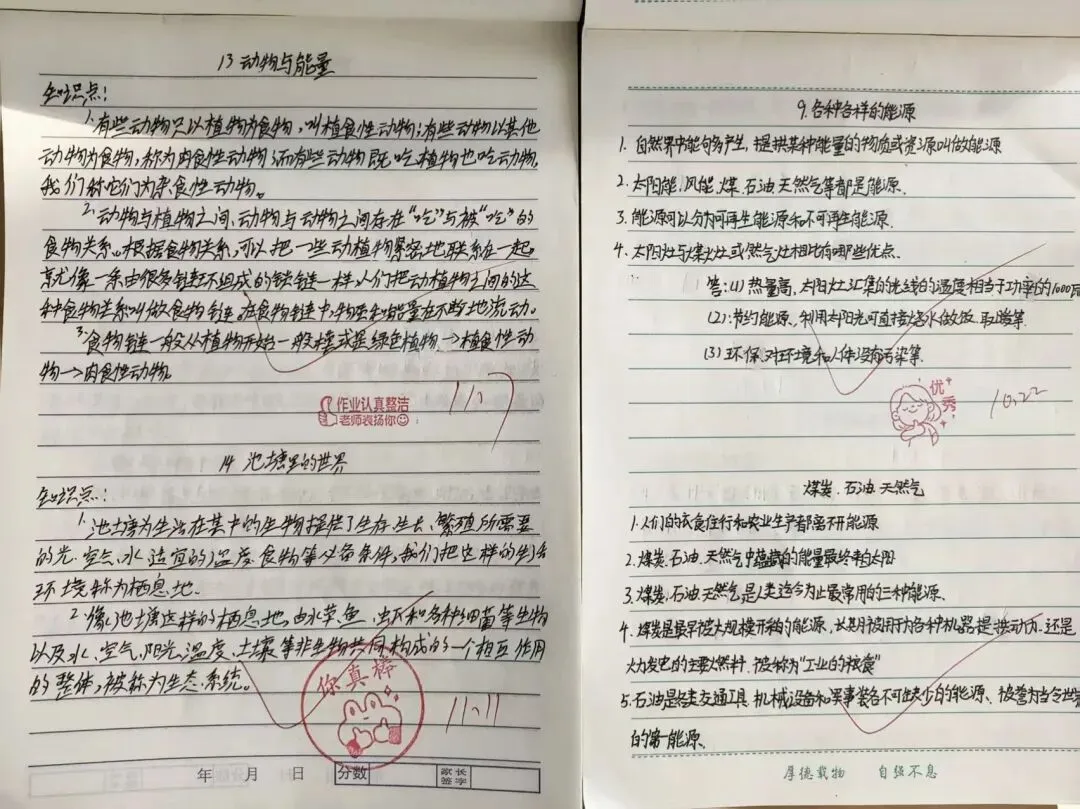 13 动物与能量
知识点:
1. 有些动物只以植物为食物,叫植食性动物;有些动物以其他
动物为食物,称为肉食性动物;而有些动物既吃植物也吃动物,
我们称它们为杂食性动物。
2. 动物与植物之间、动物与动物之间存在“吃”与被“吃”的
食物关系。根据食物关系,可以把一些动植物紧密地联系在一起,
就像一条由很多链环组成的铁链一样。人们把动植物之间的这
种食物关系叫做食物链。在食物链中,物质和能量在不断地流动。
3. 食物链一般从植物开始一般模式是绿色植物→植食性动
物→肉食性动物。
作业认真整洁
老师表扬你
11.7
14 池塘里的世界
知识点:
1. 池塘为生活在其中的生物提供了生存、生长、繁殖所需要
的光、空气、水、适宜的温度、食物等必备条件,我们把这样的生活
环境称为栖息地。
2. 像池塘这样的栖息地,由水草、鱼、虫下和各种细菌等生物
以及水、空气、阳光、温度、土壤等非生物共同构成的一个相互作用
的整体,被称为生态系统。
你真棒
11.11
年 月 日 分数 家长签字
9. 各种各样的能源
1. 自然界中能够多产生,提供某种能量的物质或资源叫做能源
2. 太阳能、风能、煤、石油、天然气等都是能源.
3. 能源可以分为可再生能源和不可再生能源.
4. 太阳灶与煤火灶或然气灶相比有哪些优点.
答:(1) 热量高,太阳灶汇集的光线的温度相当于功率的1000瓦
(2):节约能源,利用太阳光可直接烧水做饭、取暖等.
(3) 环保.对环境和人体没有污染等.
优秀
10.22
煤炭.石油.天然气
1. 人们的衣食住行和农业生产都离不开能源
2. 煤炭、石油、天然气中蕴藏的能量最终来自太阳
3. 煤炭、石油、天然气是人类迄今为止最常用的三种能源.
4. 煤炭是最早被大规模开采的能源,长期被用于为各种机器提供动力、还是
火力发电的主要燃料,被称为“工业的粮食”
5. 石油是各类交通工具、机械设备和军事装备不可缺少的能源、被誉为当今世界
的第一能源、
厚德载物 自强不息